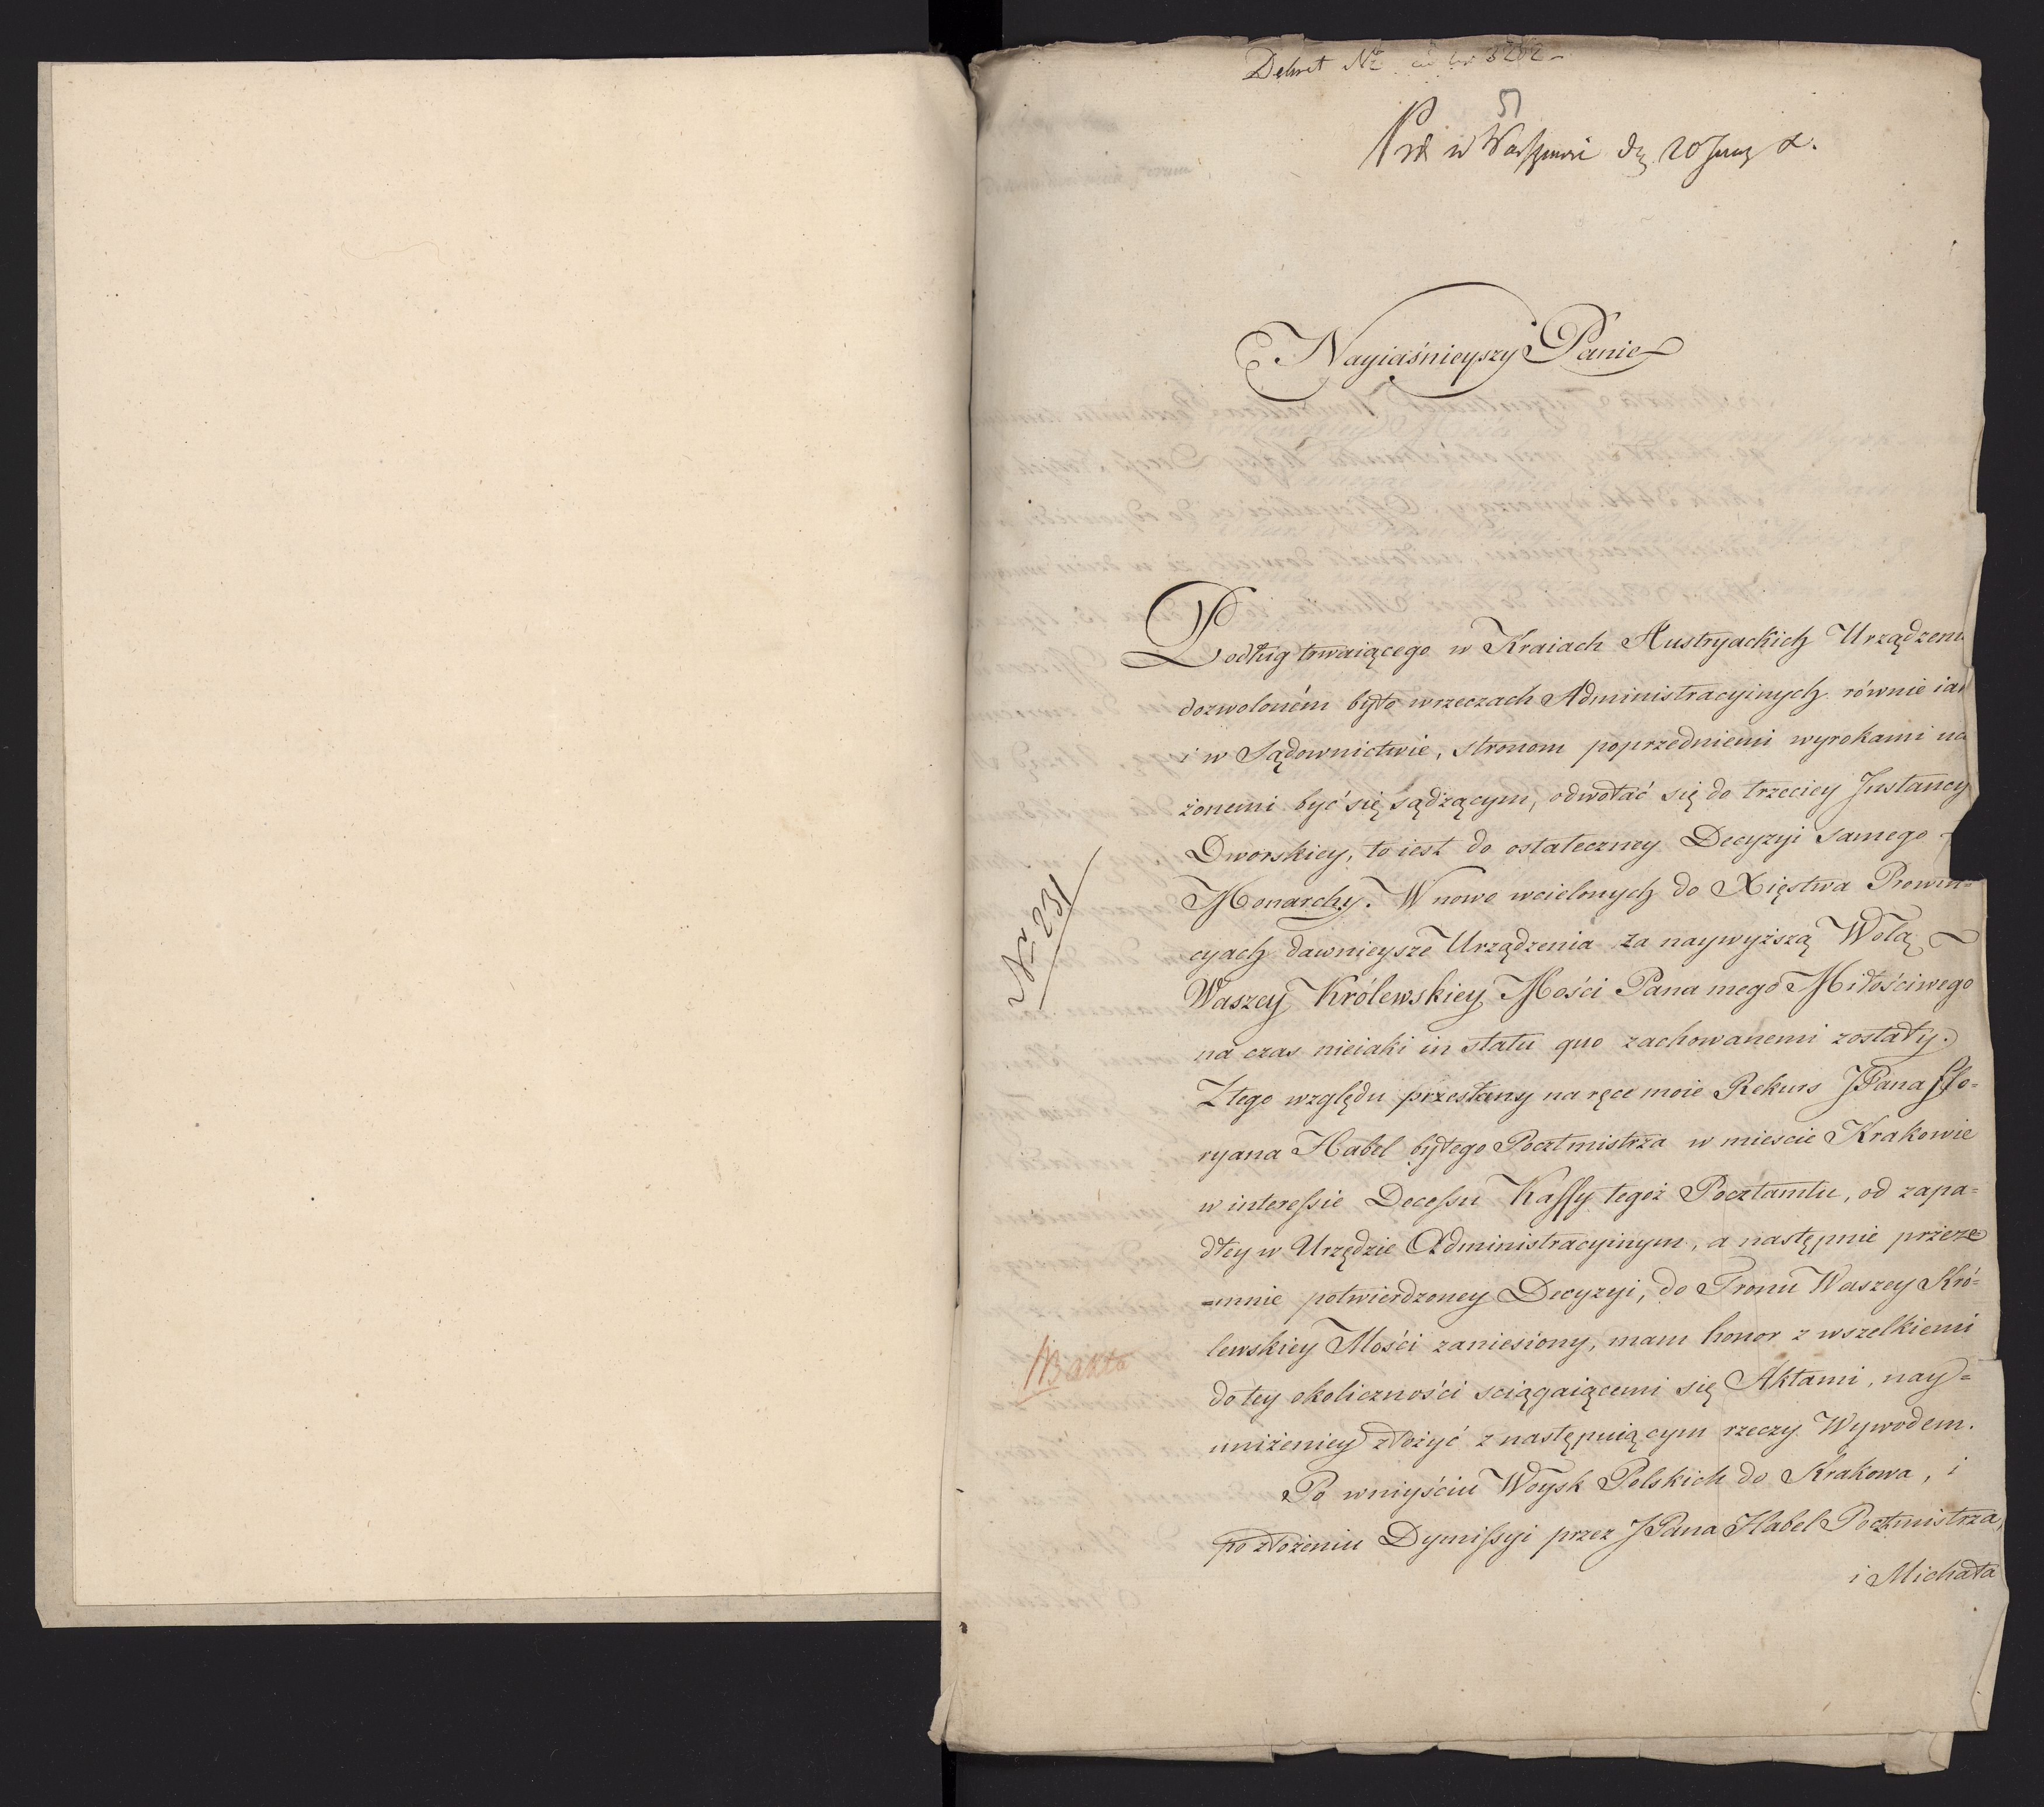 Dekret Nr 3202
51
w Warszawie d. 20
Nayiaśnieyszy Panie
Podług trwaiącego w Kraiach Austryackich Urządzeni
dozwoloném było wrzeczach Administracyinych równie iak
i w Sądownictwie, stronom poprzedniemi wyrokami uci
żonemi być się sądzącym, odwołać się do trzeciey Instancyi
Dworskiey, to iest do ostateczney Decyzyi samego
Monarchy. W nowo wcielonych do Xięstwa Prowin=
cyach dawnieysze Urządzenia za naywyższą Wolą
Waszey Królewskiey Mości Pana mego Miłościwego
na czas nieiaki in statu quo zachowanemi zostały.
Z tego względu przesłany na ręce moie Rekurs JPana Flo=
ryana Habel byłego Pocztmistrza w mieście Krakowie
w interessie Decessu Kassy tegoż Pocztamtu, od zapa=
dłey w Urzędzie Administracyinym, a następnie przeze
=mnie potwierdzoney Decyzyi, do Tronu Waszey Kró=
lewskiey Mości zaniesiony, mam honor z wszelkiemi
do tey okoliczności sciągaiącemi się Aktami, nay=
uniżeniey złożyć z następuiącym rzeczy Wywodem.
Po wniyściu Woysk Polskich do Krakowa, i
po złożeniu Dymissyi przez JPana Habel Pocztmistrza,
i Michała
Nr 231
akta